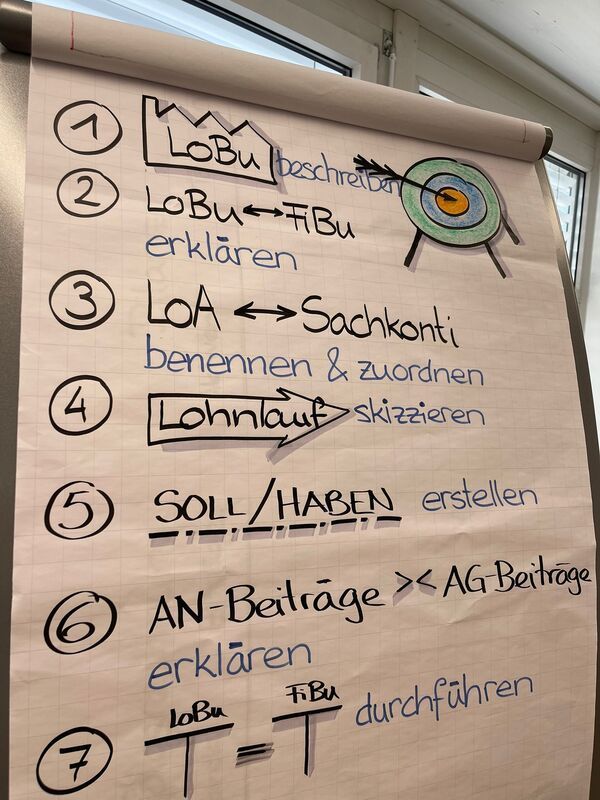 1 LoBu beschreiben
2 LoBu ↔ FiBu
erklären
3 LoA ↔ Sachkonti
benennen & zuordnen
4 Lohnlauf skizzieren
5 SOLL/HABEN erstellen
6 AN-Beiträge >< AG-Beiträge
erklären
LoBu FiBu durchführen
7 T = T